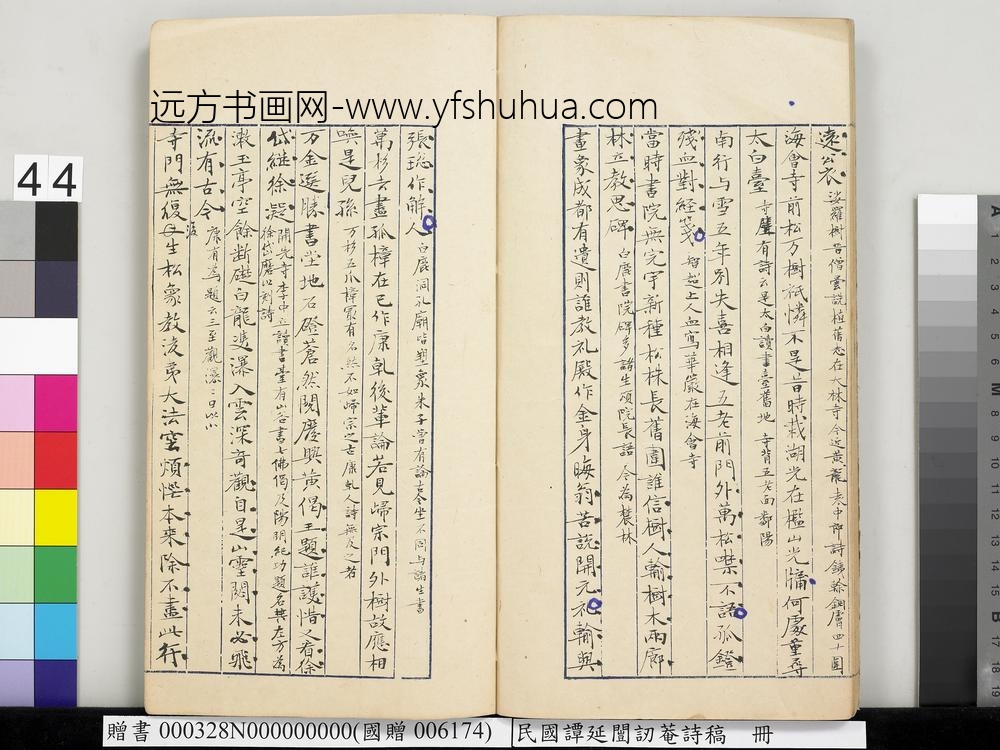 远方书画网-www.yfshuhua.com
44
遠公衣 娑羅樹 僧雲說植舊志在大林寺今近黃龍 袁中郎詩 銅膚四十圍
海會寺前松万樹祇憐不是昔時栽湖光在檻山光牖何處重尋
太白臺 寺壁有詩云是太白讀書臺舊地 寺背五老面鄱陽
南行与雪五年別失喜相逢五老前門外萬松噤不語孤鐙
殘血對經箋 智超上人血寫華嚴在海會寺
當時書院無完宇新種松株長舊圍誰信樹人輸樹木兩廊
林立教思碑 白鹿書院碑多諸生頌院長語 今為農林
畫象成都有遺則誰教礼殿作金身晦翁苦說開元礼輸與
張璁作解人 白鹿洞礼廟皆塑象朱子嘗有論
萬杉去盡孤樟在已作康乾後輩論若見歸宗門外樹故應相
喚是兒孫 万杉五爪樟冣有名然不如歸宗之古康乾人詩無及之者
万金選勝書堂地石磴蒼然閱慶興黃偈王題誰護惜又看徐
岱継徐凝 開先寺李中主讀書臺有山谷書七佛偈及陽明紀功題名其左方為
徐岱磨以刻詩
漱玉亭空餘斷礎白龍雙瀑入雲深奇觀自是山靈閟未必飛
流有古今 康有為題云三至觀瀑
寺門無復母生松象教淩夷大法空煩惱本來除不盡此行
贈書 000328N000000000(國贈 006174)
民國譚延闓訒菴詩稿 冊